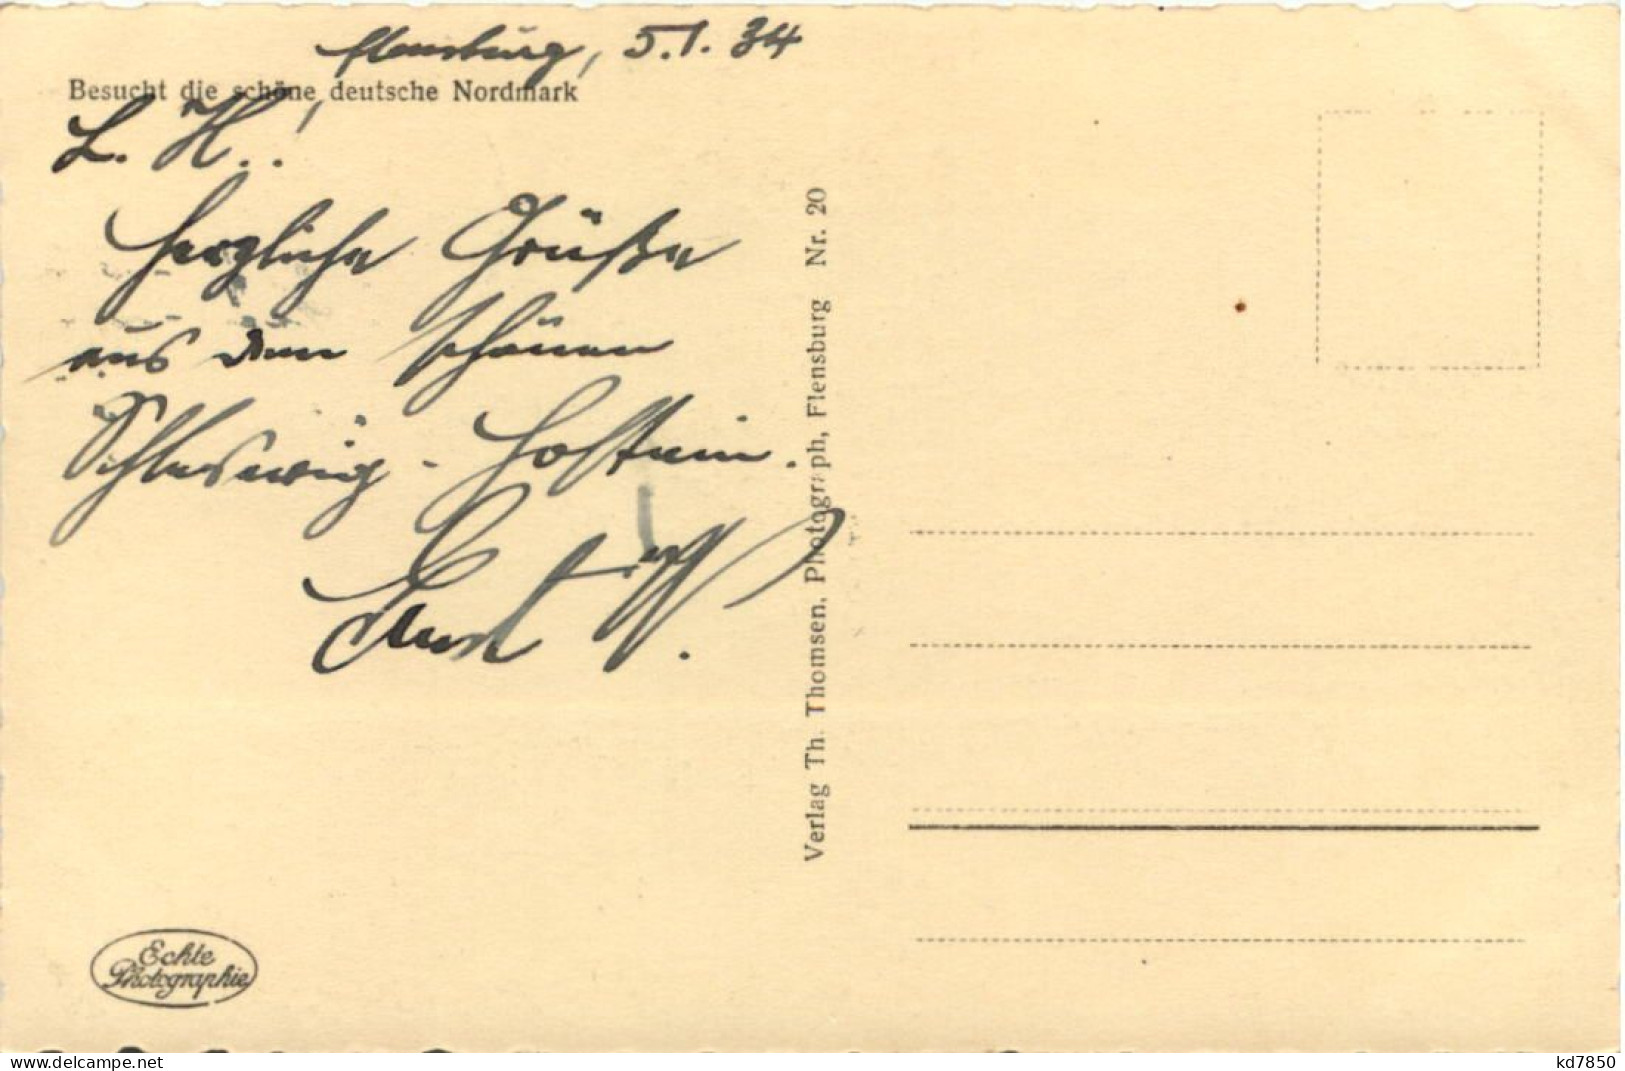 Flensburg, 5.1.34
Besucht die schöne deutsche Nordmark
L. H.!
Herzliche Grüße
aus dem schönen
Schleswig-Holstein.
Ernst W.
Verlag Th. Thomsen, Photograph, Flensburg Nr. 20
Echte
Photographie
www.delcampe.net
kd7850